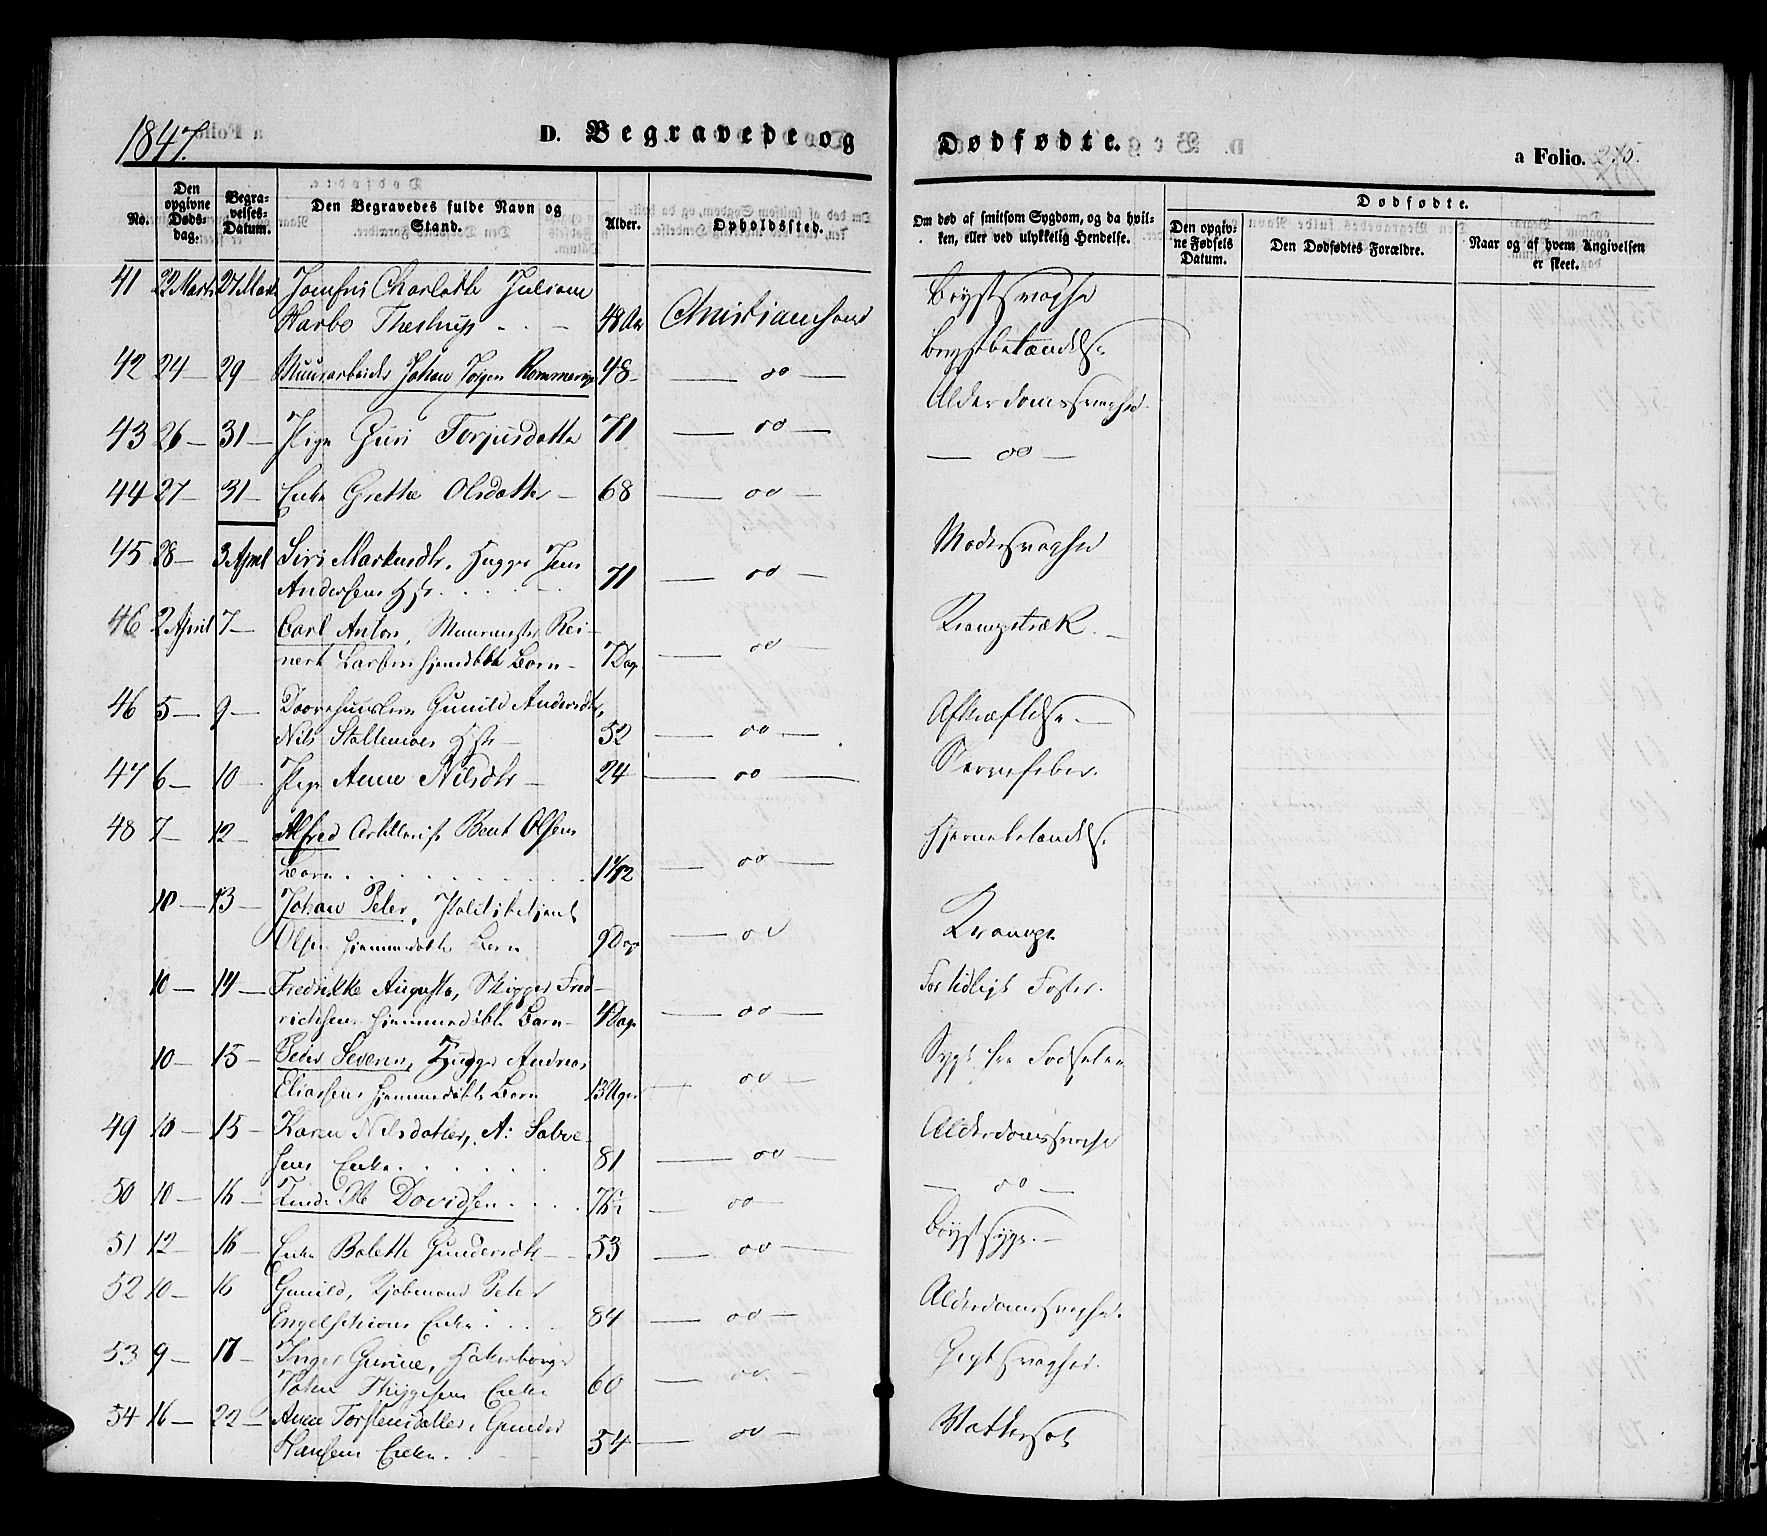 1847.
D. Begravede og Dødfødte.
a Folio. 275.
No. Den opgivne Døds-dag. Begra-velses-Datum. Den Begravedes fulde Navn og Stand. Alder. Opholdssted. Om død af smitsom Sygdom, og da hvil-ken, eller ved ulykkelig Hendelse. Dødfødte. Den opgiv-ne Fødsels Datum. Den Dødfødtes Forældre. Naar og af hvem Angivelsen er skeet.
41 22 Marts 27 Marts Jomfru Charlotte Juliane
Harbo Thestrup - - - 48 Aar Christianssand Brystsvaghed
42 24 — 29 — Muurarbeider Johan Jørgen 48 — do — Brystbetændelse
43 26 — 31 — Pige Guri Torjusdatter 71 — do — Alderdomssvaghed.
44 27 — 31 — Enke Grethe Olsdatter — 68 — do — — do —
45 28 — 3 April Siri Markusdtr, Hugger Jens
Andersens Hstr . . . . 71 — do — Modersvaghed
46 2 April 7 — Carl Anton, Muurmester Rei-
nert Larsens hjemmedøbte Barn — 7 Dage — do — Krampetræk.
46 5 — 9 — Gunild Andersdtr,
Nils Hstr — 52 — do — Afkræftelse —
47 6 — 10 — Pige Anne Nilsdtr — 24 — do — Nervefeber.
48 7 — 12 — Alfred Artillerist Bent Olsens
Barn . . . . . . 1 1/12 — do — Hjernebetændelse.
10 — 13 — Johan Peter, Politibetjent
Olsens hjemmedøbte Barn 9 Dage — do — Krampe
10 — 14 — Fredrikke Augusta, Skipper Fred-
richsens hjemmedøbte Barn — 4 Dage — do — For tidligt Foster.
10 — 15 — Peder Severin, Hugger Andreas
Eliassens hjemmedøbte Barn 13 Uger — do — Sygt fra Fødselen
49 10 — 15 — Karen Nilsdatter, A:
Enke . . . . . 81 — do — Alderdomssvaghed
50 10 — 16 — Davidsen . . . . 76 1/2 — do — — do —
51 12 — 16 — Enke Bolette Gundersdtr — 53 — do — Brystsyge. —
52 10 — 16 Gunild, Kjøbmand Peter
Engelschions Enke . . . 84 — do — Alderdomssvaghed.
53 9 — 17 — Inger Gurine,
Johan Thygesens Enke 60 — do — Gigtsvaghed.
54 16 — 22 — Anne Torstensdatter, Gunder
Hansens Enke. . 54 — do — Vattersot